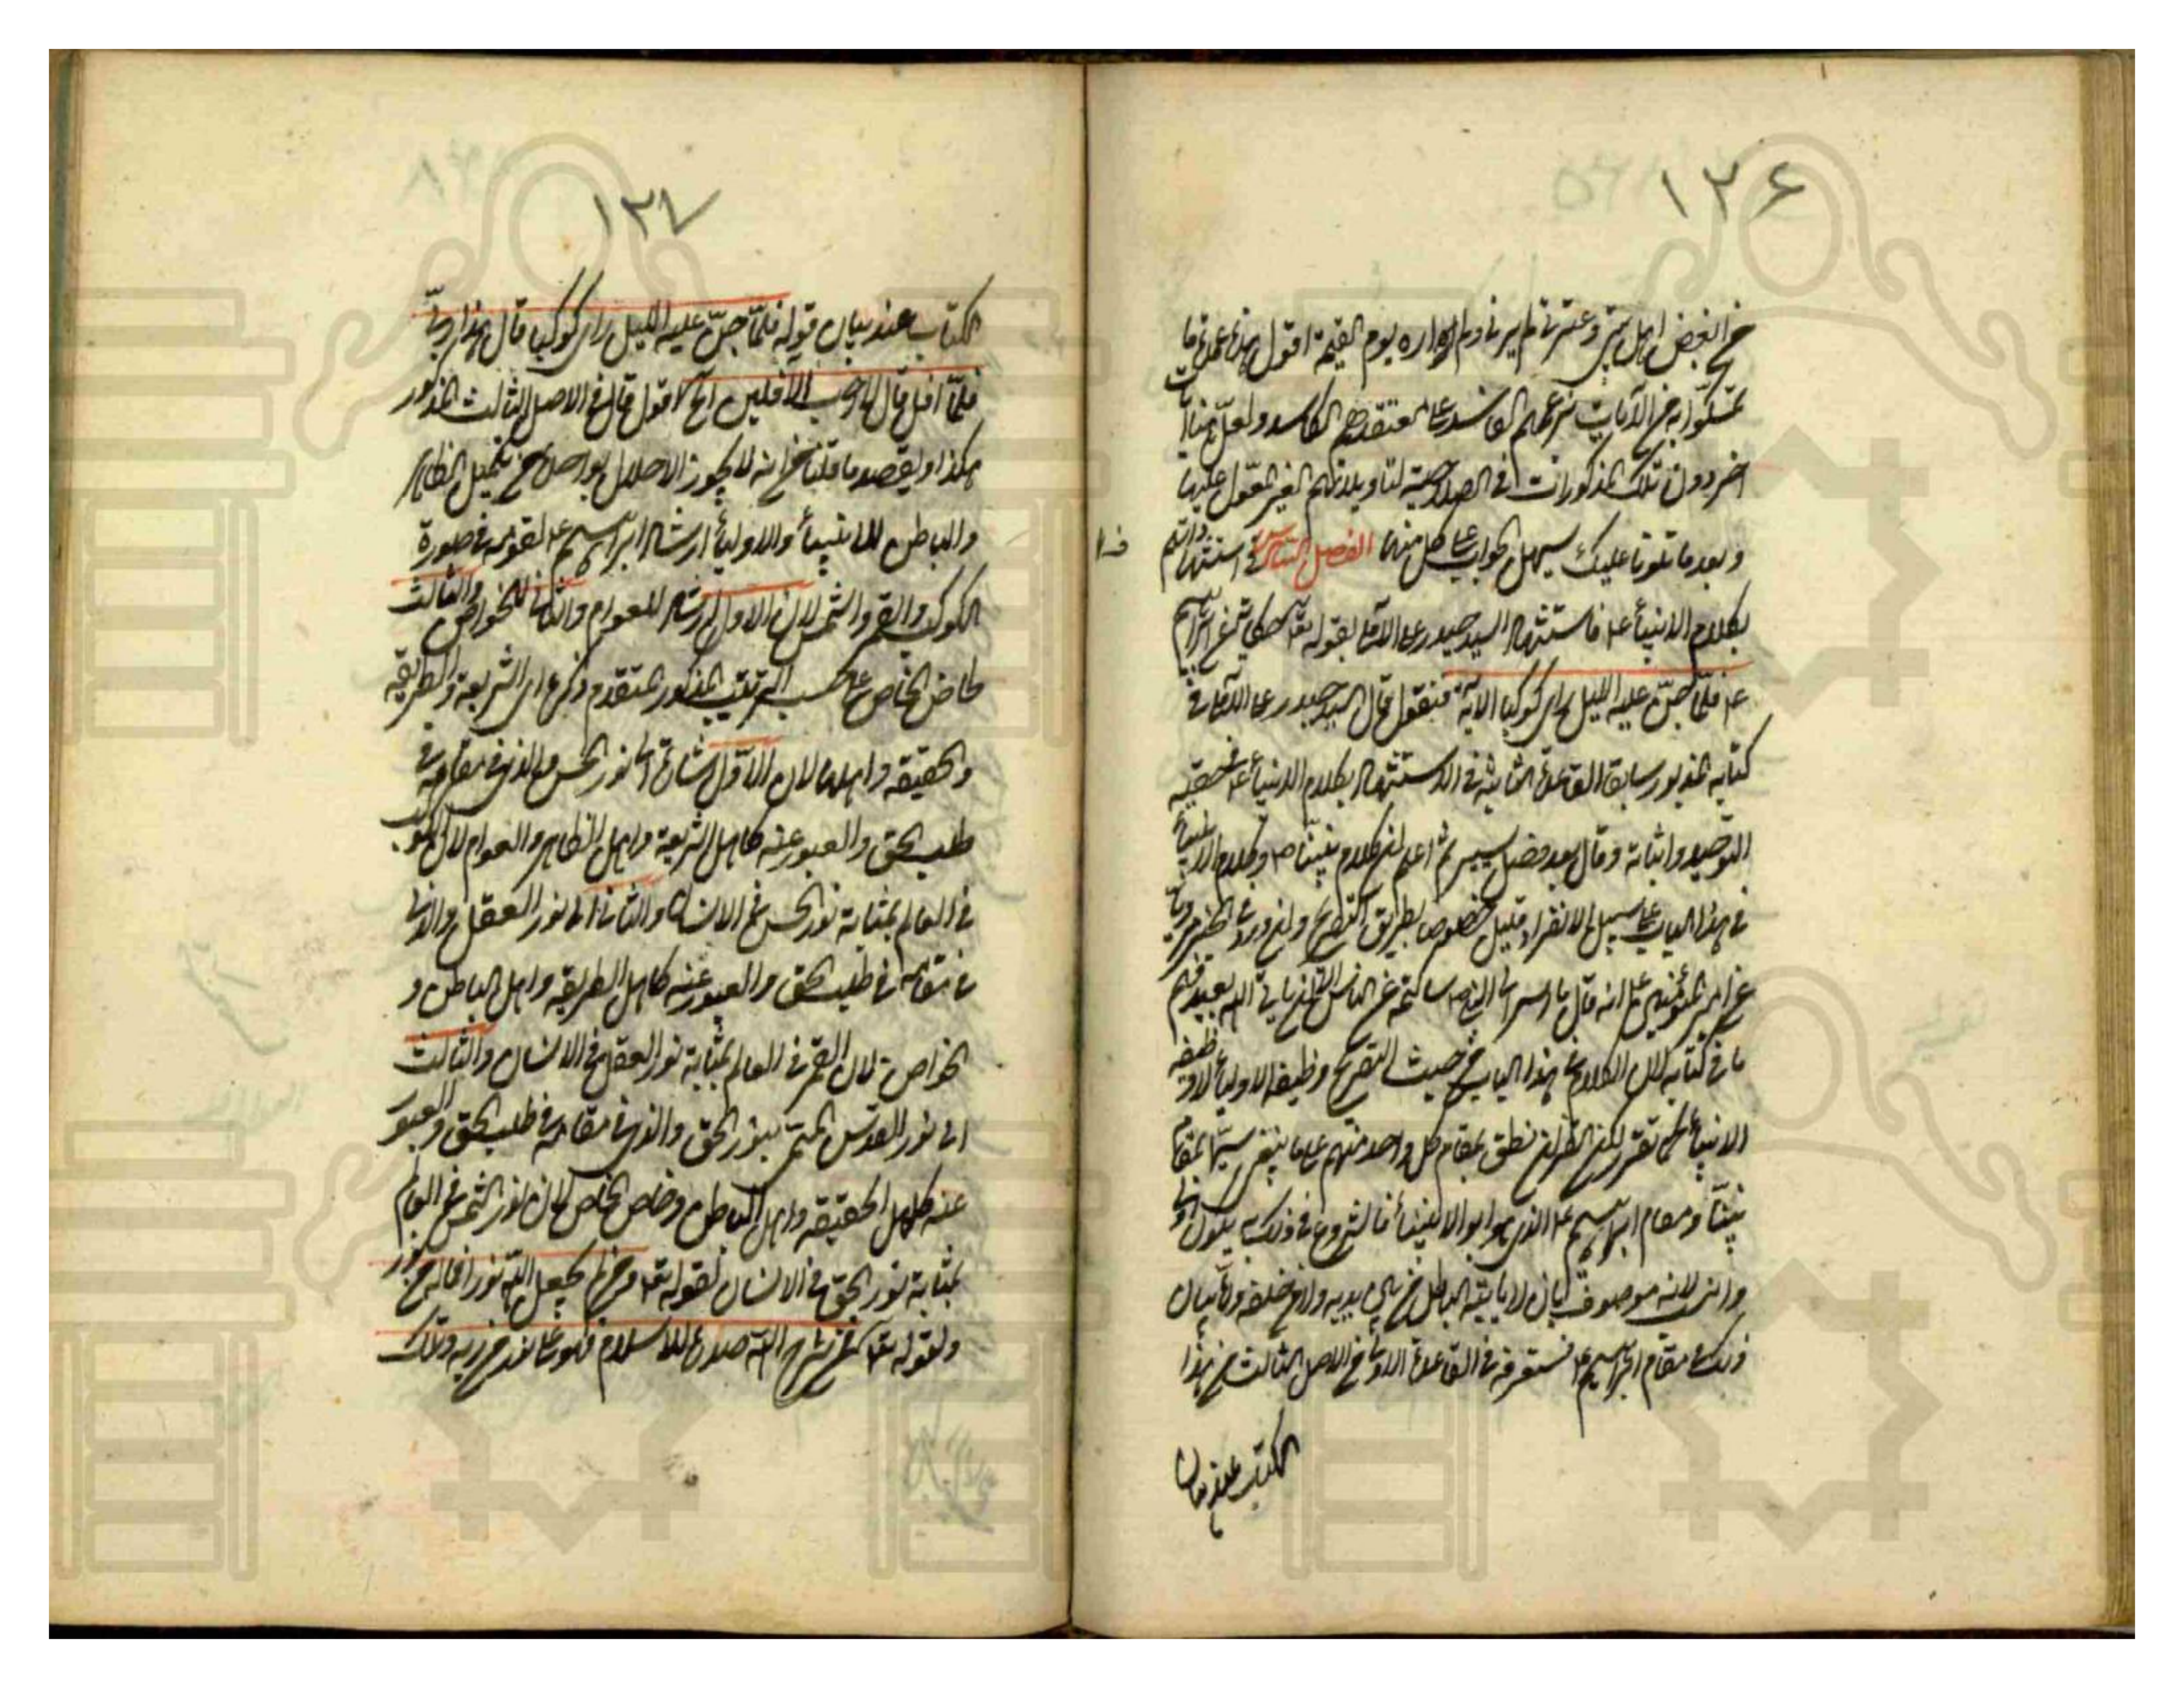 ١٢۶
من ابغض اهل بيتى وعترتى لم يرنى ولم اره يوم القيمة اقول هذه عمدة ما
تمسكوا به من الآيات بزعمهم الفاسد على معتقدهم الكاسد ولعل هنا آيات
اخر دون تلك المذكورات فى الصلاحية لتأويلاتهم الغير المعول عليها
وبعد ما تلونا عليك سهل الجواب عن كل منها الفصل السادس فى استشهاداتهم
بكلام الانبياء ع فاستشهد السيد حيدر على الآملى بقوله تعالى حكاية عن ابراهيم
ع فلما جن عليه الليل راى كوكبا الآية فنقول قال السيد حيدر على الآملى فى
كتابه المذبور سابقا القاعدة الثانية فى الاستشهاد بكلام الانبياء ع فى حقية
التوحيد واثباته وقال بعد فصل يسير ثم اعلم ان كلام نبينا ص وكلام الانبياء
فى هذا الباب على سبيل الانفراد قليل خصوصا بطريق التصريح وان ورد فى الخبر مرويا
عن امير المؤمنين ع انه قال
ما فى كتابه لان الكلام فى هذا الباب من حيث التصريح وظيفة الاولياء لا وظيفة
الانبياء كما تقرر لكن القرآن نطق بمقام كل واحد منهم على ما ينبغى سيما بمقام
نبينا ومقام ابراهيم ع الذى هو ابو الانبياء فالشروع فى ذلك به يكون اولى
وانسب لانه موصوف بان لا يأتيه الباطل من بين يديه ولا من خلفه واما بيان
ذلك فى مقام ابراهيم ع فستعرفه فى القاعدة الاولى من الاصل الثالث من هذا
الكتاب عند بيان
١٢٧
الكتاب عند بيان قوله فلما جن عليه الليل راى كوكبا قال هذا ربى
فلما افل قال لا احب الآفلين آه اقول قال فى الاصل الثالث المذكور
هكذا ويعضد ما قلنا من انه لا يجوز الاخلال بواحد من تكميل الظاهر
والباطن للانبياء والاولياء ارشاد ابراهيم ع لقومه فى صورة
الكوكب والقمر والشمس لان الاول ارشاد للعوام والثانى للخواص والثالث
لخاص الخاص على حسب الترتيب المذكور المتقدم ذكره اى الشريعة والطريقة
والحقيقة واهلها لان الاول اشارة الى نور الحس والذى فى مقامه فى
طلب الحق والعبور عنه كاهل الشريعة واهل الظاهر والعوام لان الكوكب
فى العالم بمثابة نور الحس فى الانسان والثانى الى نور العقل والذى
فى مقامه فى طلب الحق والعبور عنه كاهل الطريقة واهل الباطن و
الخواص لان القمر فى العالم بمثابة نور العقل فى الانسان والثالث
الى نور القدس المسمى بنور الحق والذى فى مقامه فى طلب الحق والعبور
عنه كاهل الحقيقة واهل الباطن وخاص الخاص لان نور الشمس فى العالم
بمثابة نور الحق فى الانسان لقوله تعالى ومن لم يجعل الله نورا فما له من نور
ولقوله تعالى افمن شرح الله صدره للاسلام فهو على نور من ربه وتلك